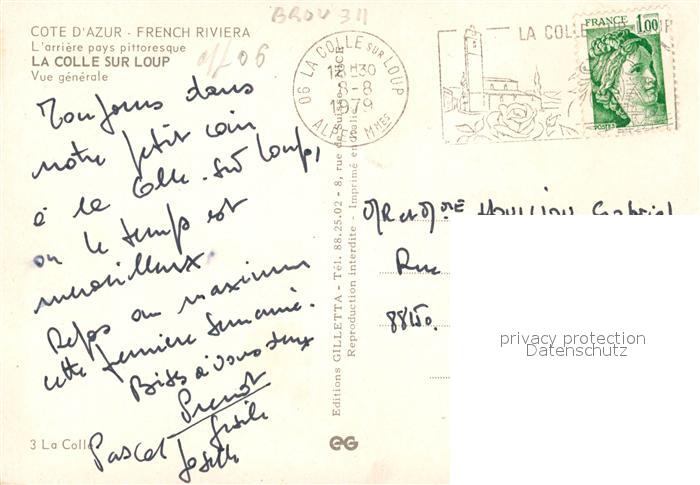 BROU 311
COTE D'AZUR - FRENCH RIVIERA
L'arrière pays pittoresque
LA COLLE SUR LOUP
Vue générale
06
Toujours dans
notre petit coin
à la Colle-sur Loup,
ou le temps est
merveilleux.
Repos au maximum
cette dernière semaine.
Bises à vous deux
Gisèle
Pascal Joselle
3 La Colle
06 LA COLLE SUR LOUP
8-8
1979
ALPES MMES
LA COLLE
FRANCE 1,00
POSTES
Editions GILLETTA - Tél. 88.25.02 - 8, rue de Suisse - NICE
Reproduction interdite - Imprimé en Italie
EG
Mr et Mme Gabriel
Rue
88150.
privacy protection
Datenschutz